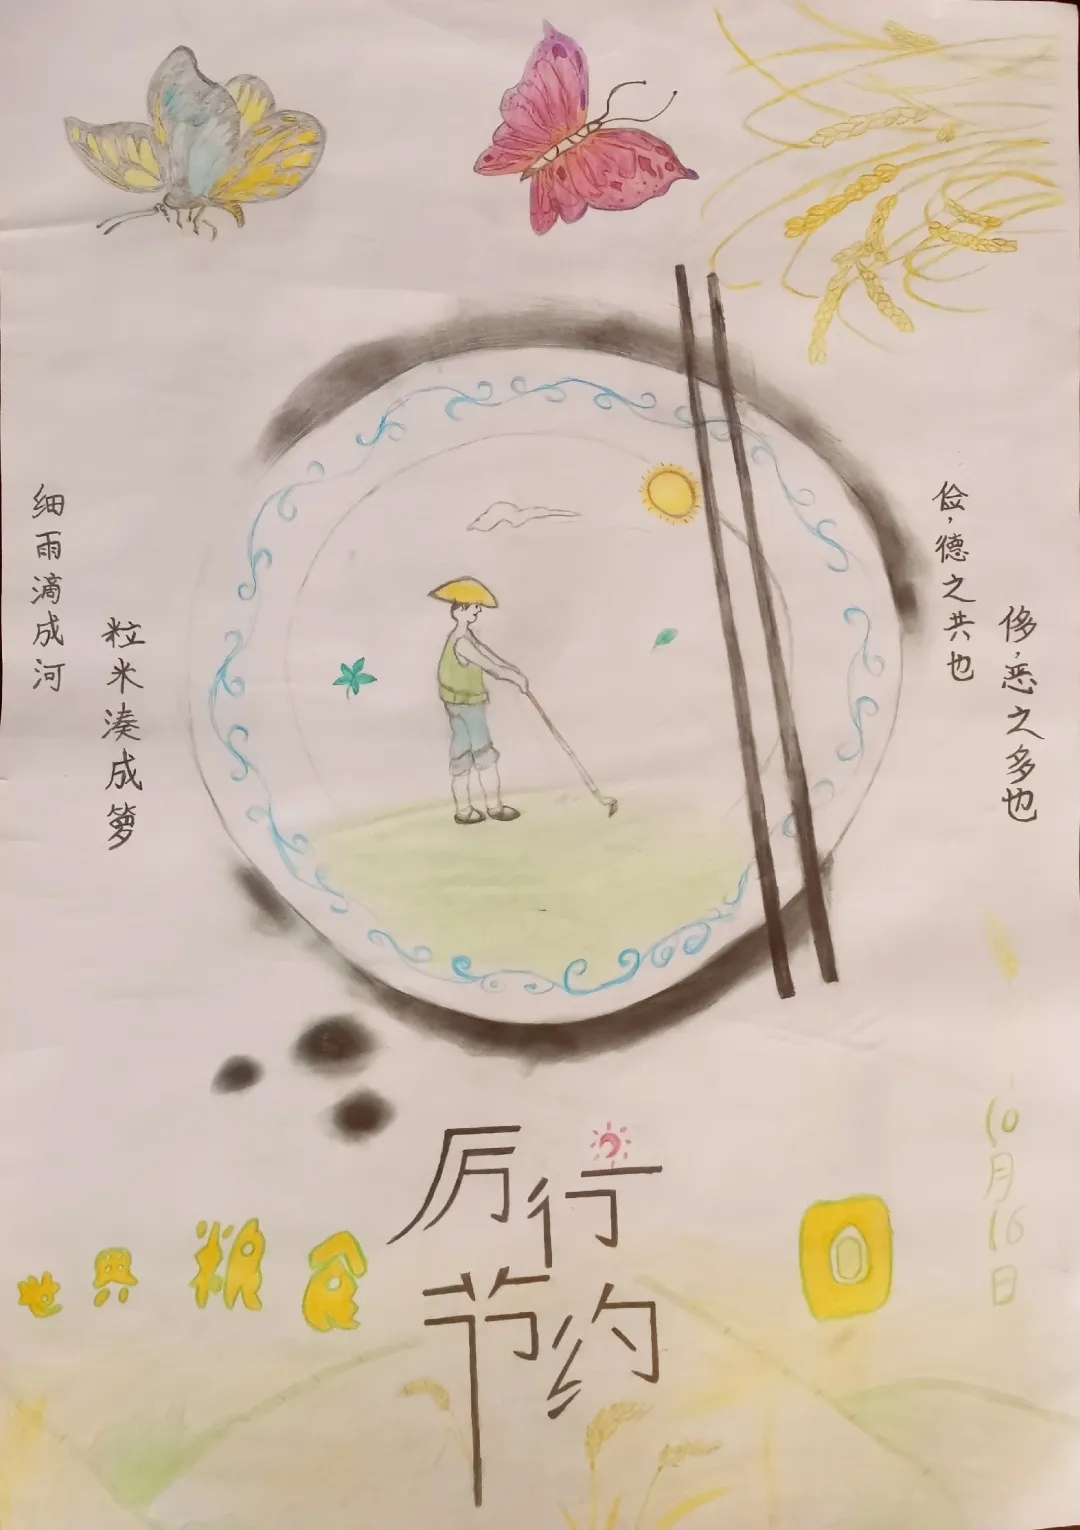 细雨滴成河
粒米凑成箩
俭，德之共也
侈，恶之多也
厉行
节约
世界粮食日
10月16日